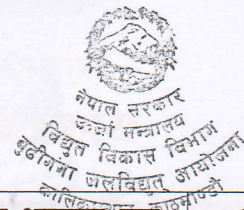 नेपाल सरकार
ऊर्जा मन्त्रालय
विद्युत विकास विभाग
बुढीगंगा जलविद्युत आयोजना
काठमाण्डौ